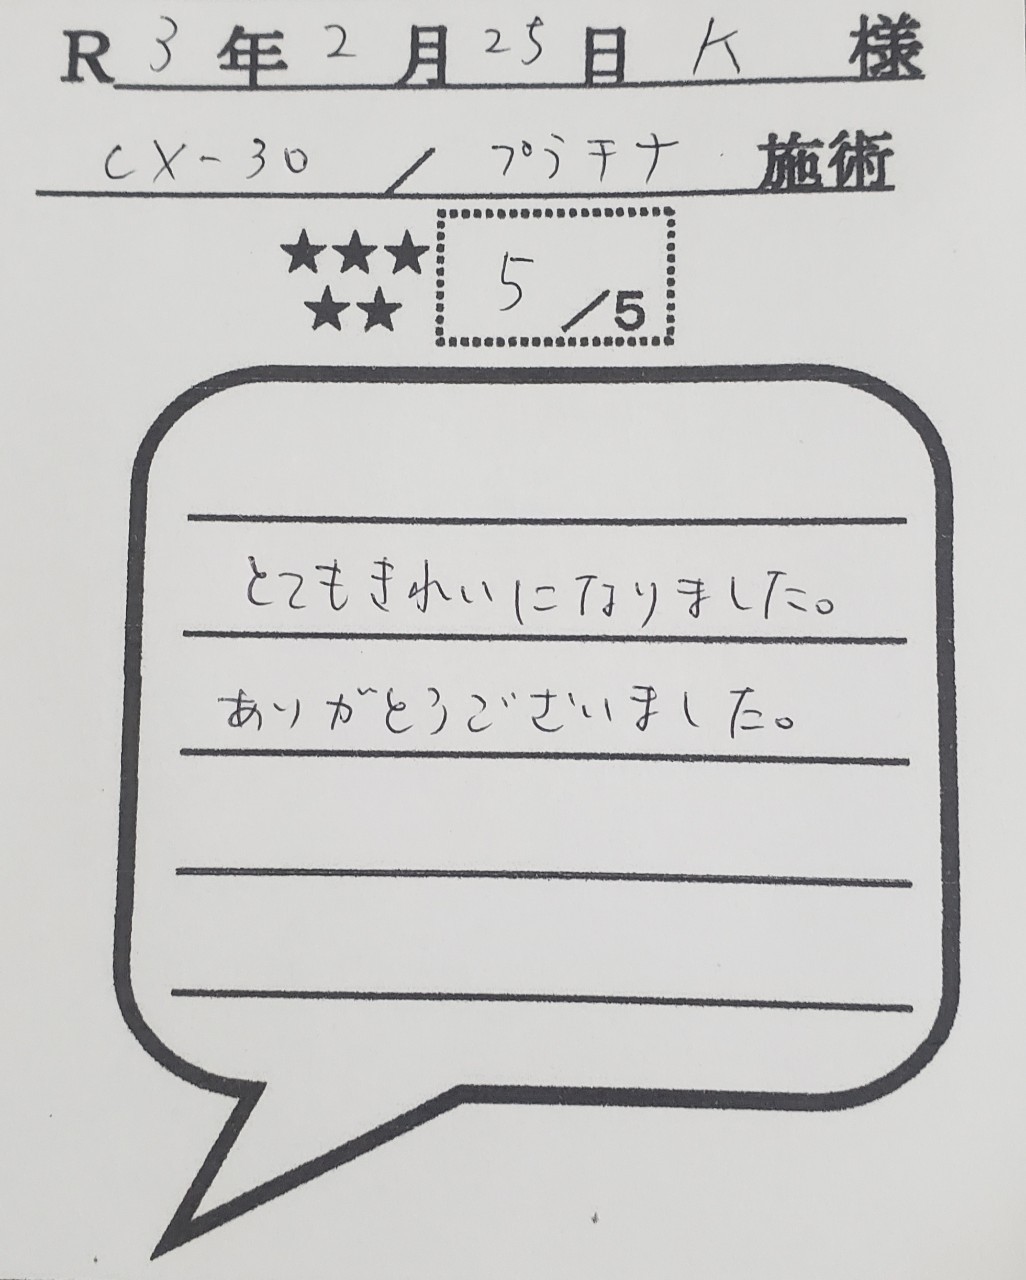 R 3 年 2 月 25 日 K 様
CX-30 / プラチナ 施術
★★★
★★
5 /5
とてもきれいになりました。
ありがとうございました。